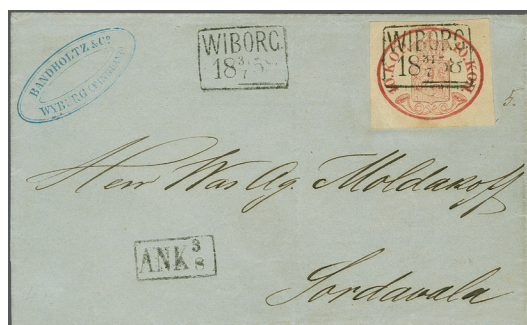 BANDHOLTZ & Co
WYBORG (FINNLAND)
WIBORG.
18 31/7 58
WIBORG.
18 31/7 58
10. KOP. 10. KOP.
5.
Herr Was Ag. Moldakoff
ANK 3/8
Sordavala